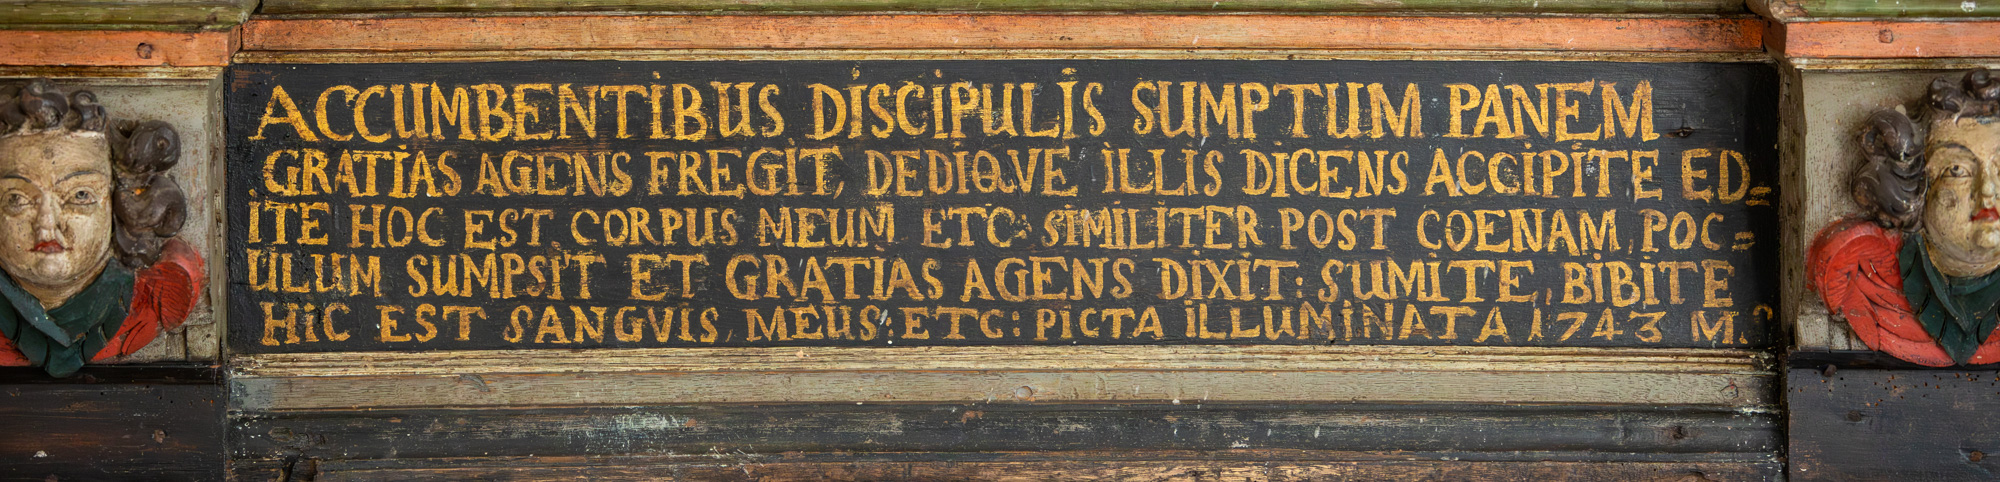 ACCUMBENTIBUS DISCIPULIS SUMPTUM PANEM
GRATIAS AGENS FREGIT, DEDIQVE ILLIS DICENS ACCIPITE ED=
ITE HOC EST CORPUS MEUM ETC: SIMILITER POST COENAM, POC=
ULUM SUMPSIT ET GRATIAS AGENS DIXIT: SUMITE, BIBITE
HIC EST SANGVIS, MEUS: ETC: PICTA ILLUMINATA 1743 M.